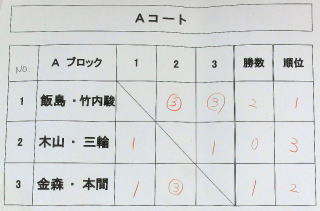 Aコート
NO. A ブロック 1 2 3 勝数 順位
1 飯島・竹内駿 ③ ③ 2 1
2 木山・三輪 1 1 0 3
3 金森・本間 1 ③ 1 2